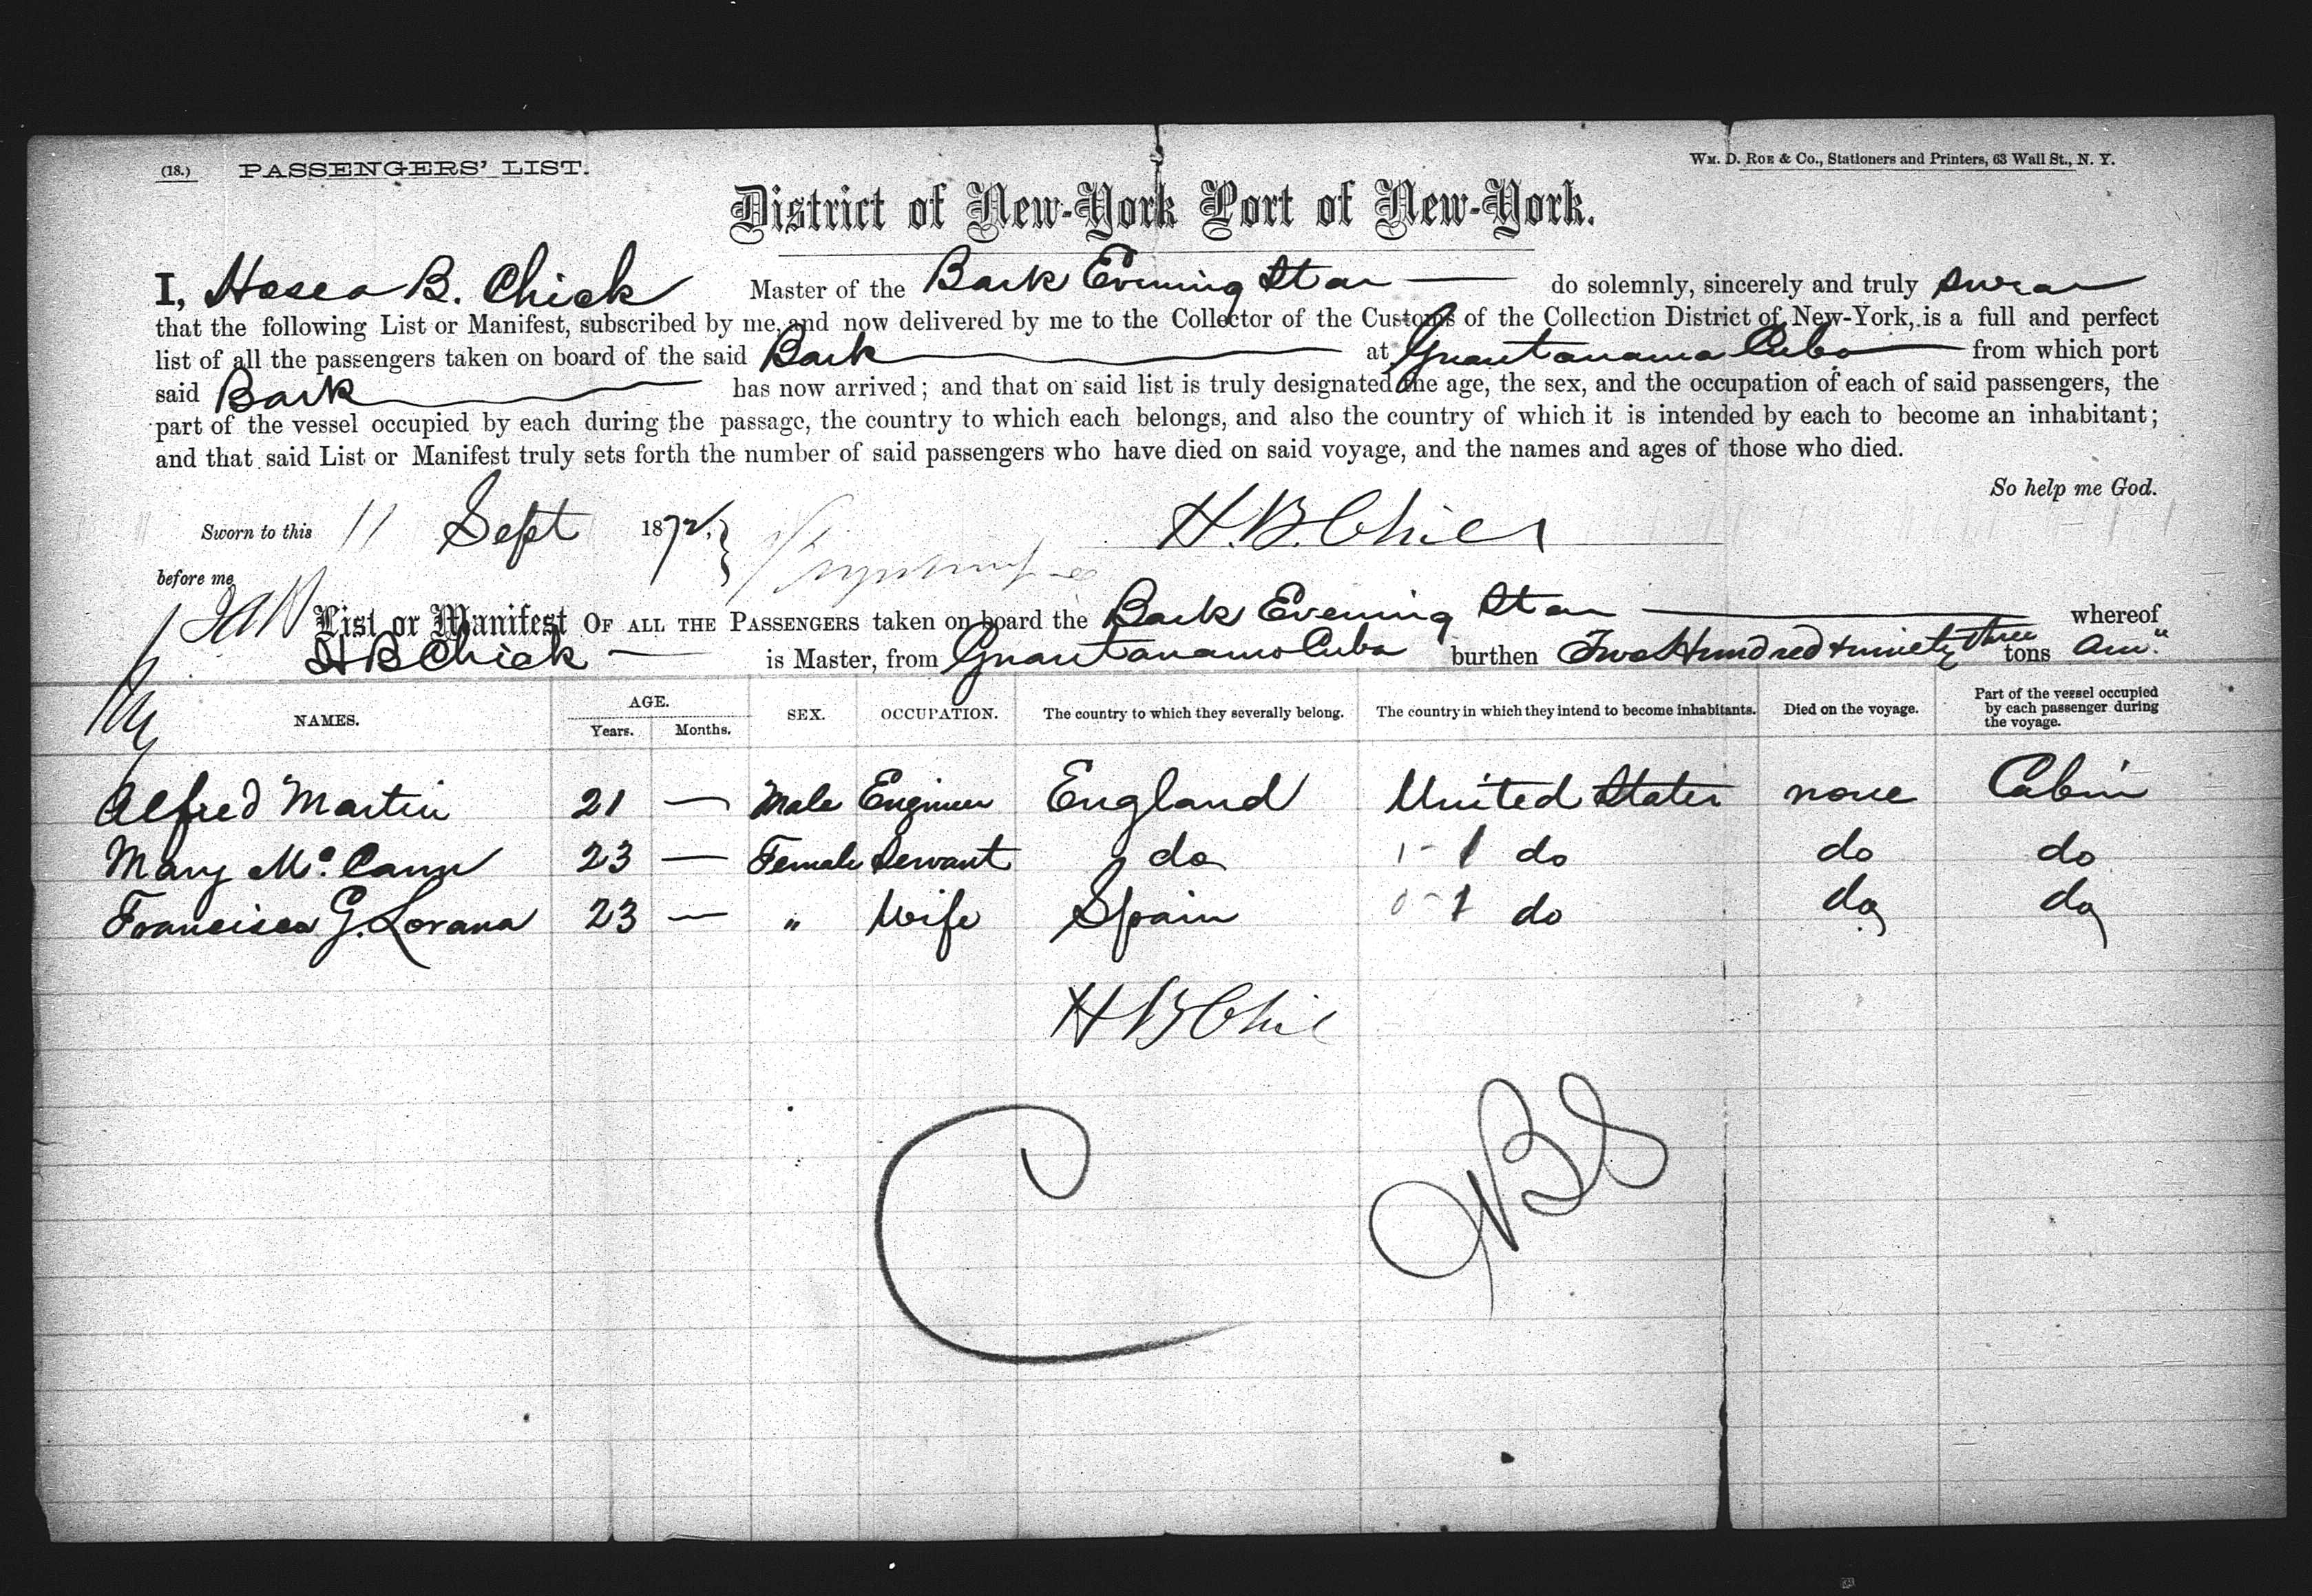 (18.) PASSENGERS' LIST.
WM. D. ROE & Co., Stationers and Printers, 63 Wall St., N. Y.
District of New-York Port of New-York.
I, Hosea B. Chick Master of the Bark Evening Star do solemnly, sincerely and truly swear
that the following List or Manifest, subscribed by me, and now delivered by me to the Collector of the Customs of the Collection District of New-York, is a full and perfect
list of all the passengers taken on board of the said Bark at Guantanamo Cuba from which port
said Bark has now arrived; and that on said list is truly designated the age, the sex, and the occupation of each of said passengers, the
part of the vessel occupied by each during the passage, the country to which each belongs, and also the country of which it is intended by each to become an inhabitant;
and that said List or Manifest truly sets forth the number of said passengers who have died on said voyage, and the names and ages of those who died.
So help me God.
Sworn to this 11 Sept 1872. H. B. Chick
before me
List or Manifest OF ALL THE PASSENGERS taken on board the Bark Evening Star whereof
H B Chick is Master, from Guantanamo Cuba burthen Two Hundred + ninety three tons Am.
NAMES. AGE. Years. Months. SEX. OCCUPATION. The country to which they severally belong. The country in which they intend to become inhabitants. Died on the voyage. Part of the vessel occupied by each passenger during the voyage.
Alfred Martin 21 — Male Engineer England United States none Cabin
Mary Mc. Cann 23 — Female Servant do 1-1 do do do
Francisca G. Lorana 23 — " Wife Spain 0-1 do do do
H B Chick
C